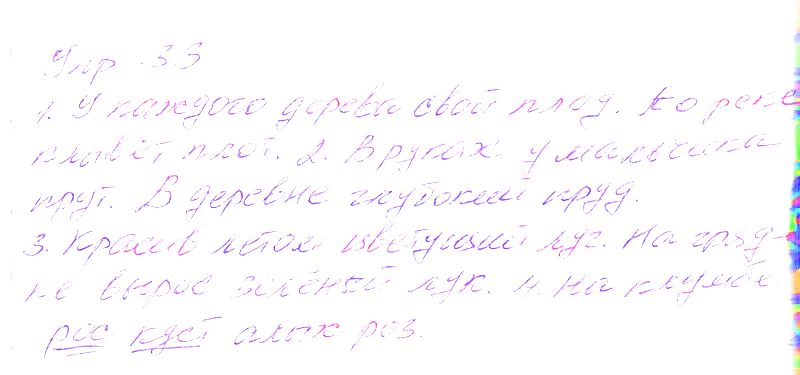 Упр 33
1. У каждого дерева свой плод. По реке
плывёт плот. 2. В руках у мальчика
прут. В деревне глубокий пруд.
3. Красив летом цветущий луг. На гряд-
ке вырос зелёный лук. 4. На клумбе
рос куст алых роз.